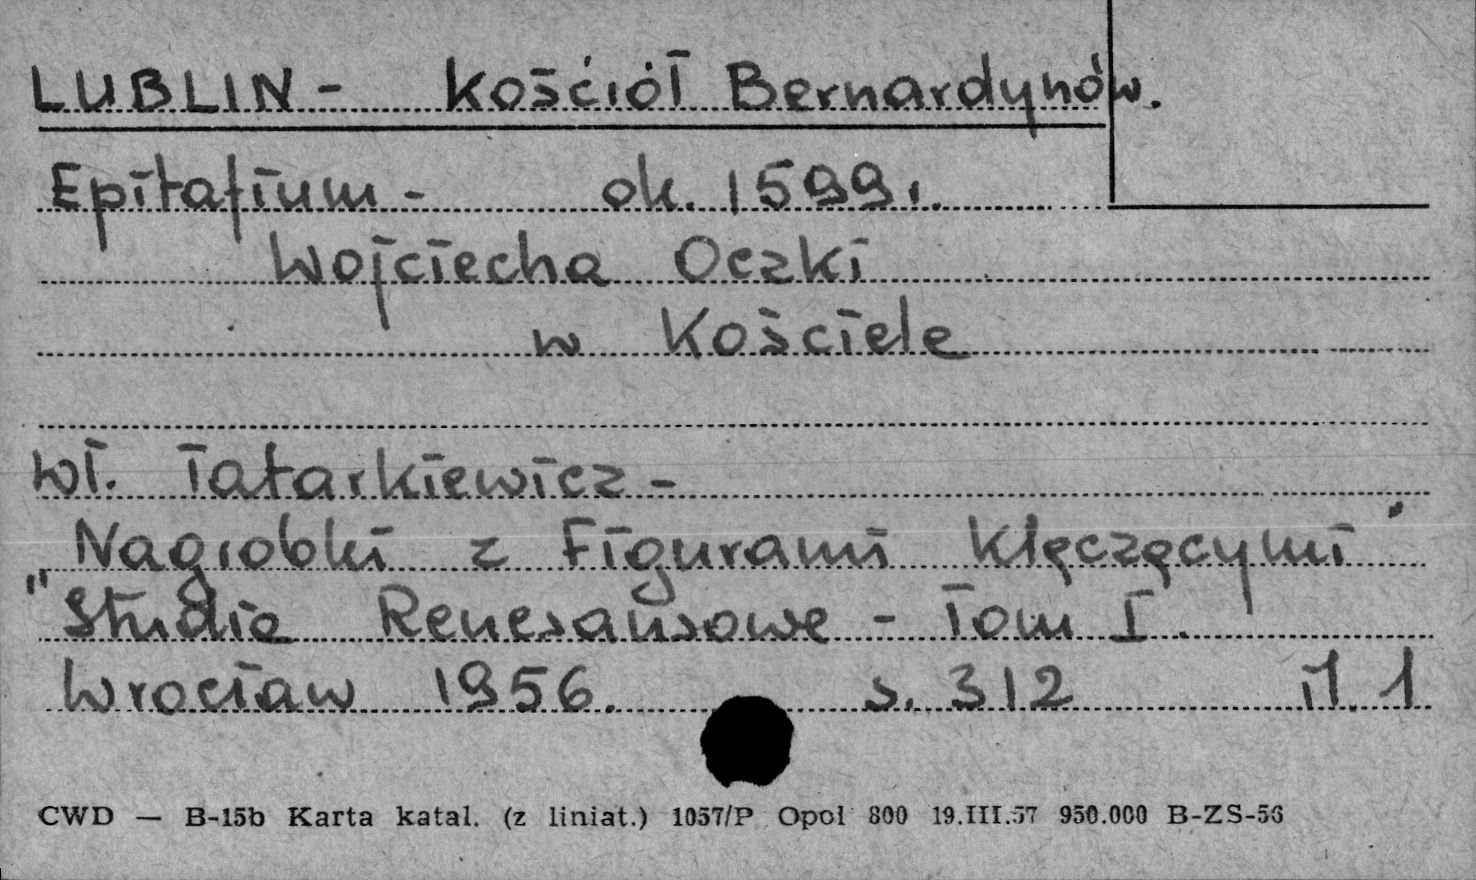 LUBLIN - Kościół Bernardynów.
Epitafium - ok. 1599 r.
Wojciecha Oczki
w Kościele
Wł. Tatarkiewicz -
Nagrobki z Figurami Klęczęcymi"
"Studia Renesansowe - Tom I.
Wrocław 1956. s. 312 il. 1
CWD — B-15b Karta katal. (z liniat.) 1057/P Opol 800 19.III.57 950.000 B-ZS-56